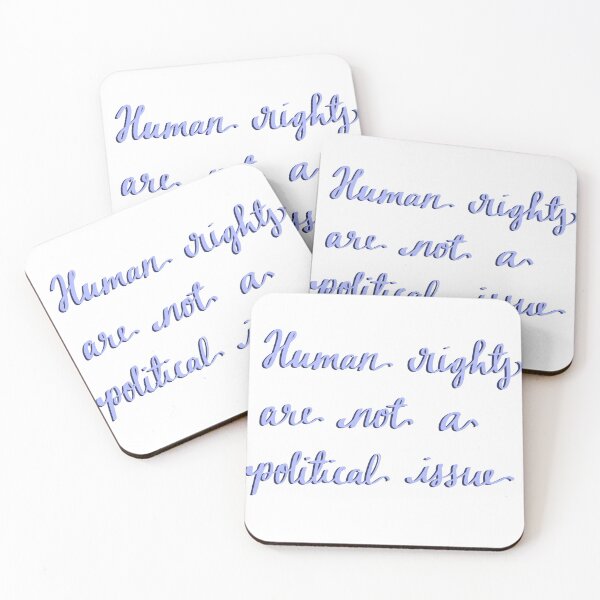 Human rights
are not a
Human rights
are not a
political issue
Human rights
are not a
political
Human rights
are not a
political issue